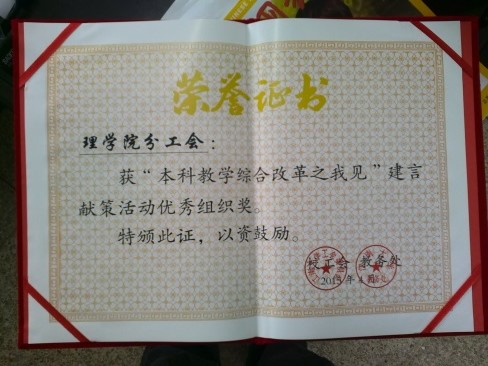 荣誉证书
理学院分工会:
获“本科教学综合改革之我见”建言
献策活动优秀组织奖。
特颁此证,以资鼓励。
校工会 教务处